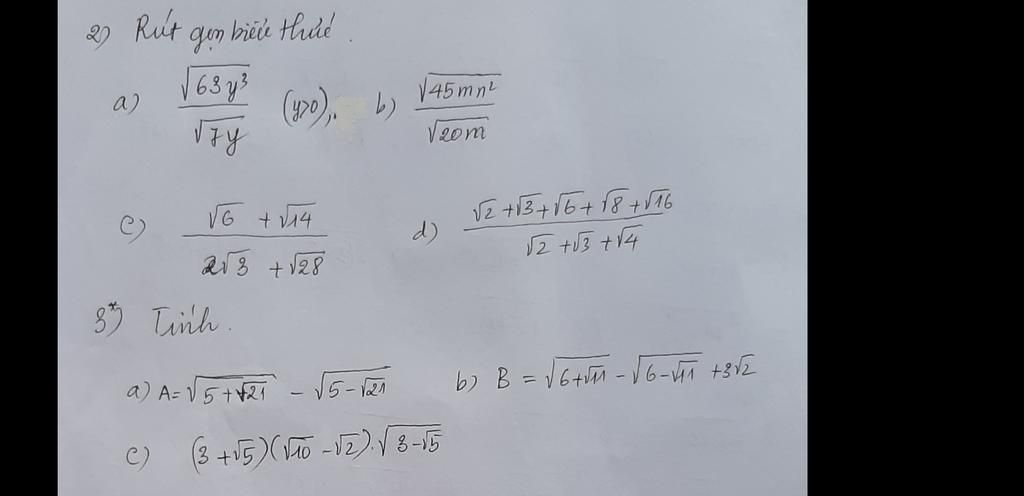 2) Rút gọn biểu thức.
a) \frac{\sqrt{63y^3}}{\sqrt{7y}} (y>0); b) \frac{\sqrt{45mn^2}}{\sqrt{20m}}
c) \frac{\sqrt{6} + \sqrt{14}}{2\sqrt{3} + \sqrt{28}} d) \frac{\sqrt{2} + \sqrt{3} + \sqrt{6} + \sqrt{8} + \sqrt{16}}{\sqrt{2} + \sqrt{3} + \sqrt{4}}
3*) Tính.
a) A = \sqrt{5 + \sqrt{21}} - \sqrt{5 - \sqrt{21}} b) B = \sqrt{6 + \sqrt{11}} - \sqrt{6 - \sqrt{11}} + 3\sqrt{2}
c) (3 + \sqrt{5})(\sqrt{10} - \sqrt{2}).\sqrt{3 - \sqrt{5}}